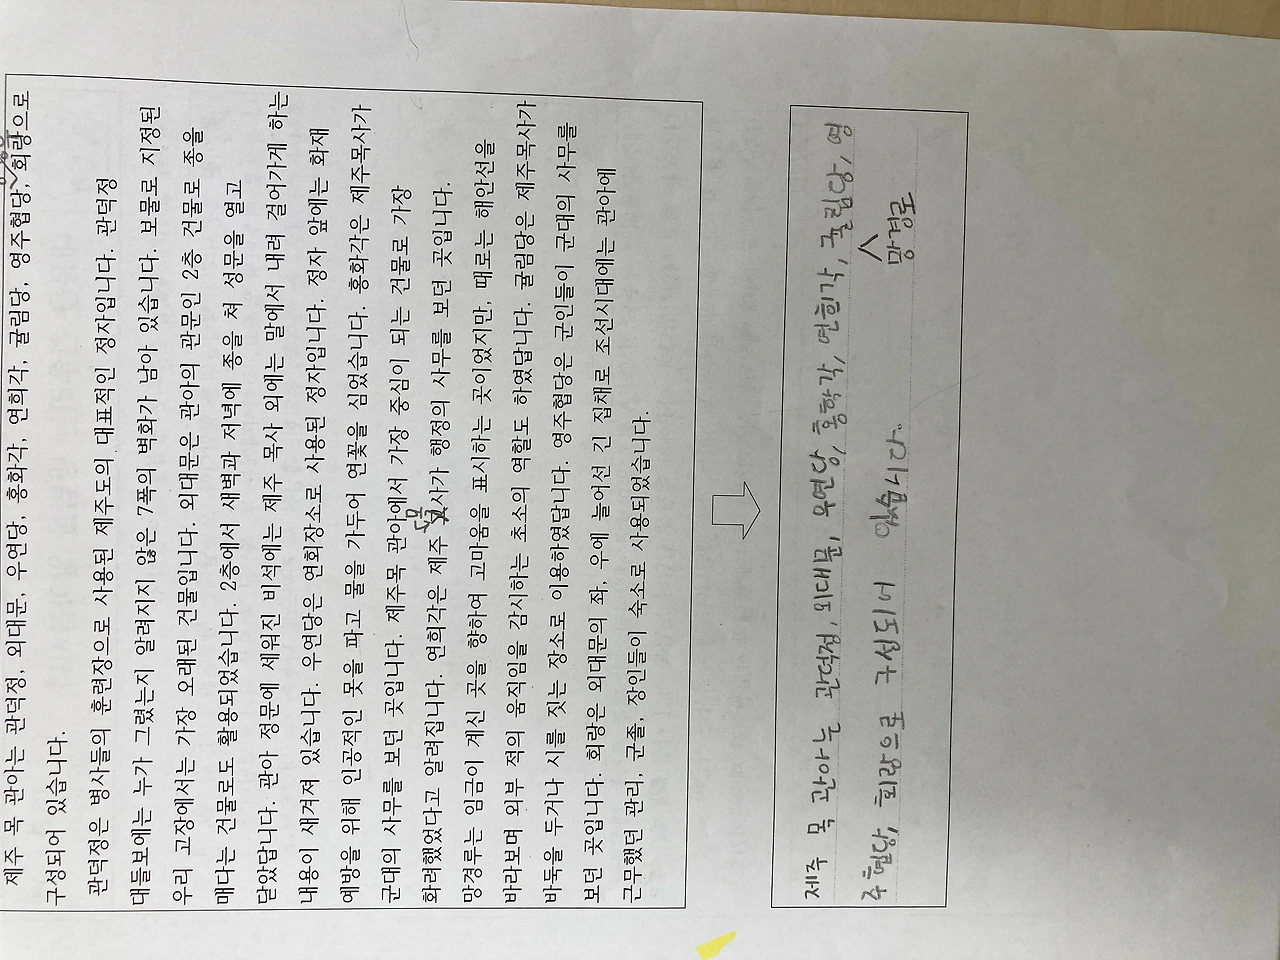 제주 목 관아는 관덕정, 외대문, 우연당, 홍화각, 연희각, 귤림당, 영주협당, 회랑으로
구성되어 있습니다.
관덕정은 병사들의 훈련장으로 사용된 제주도의 대표적인 정자입니다. 관덕정
대들보에는 누가 그렸는지 알려지지 않은 7폭의 벽화가 남아 있습니다. 보물로 지정된
우리 고장에서는 가장 오래된 건물입니다. 외대문은 관아의 관문인 2층 건물로 종을
매다는 건물로도 활용되었습니다. 2층에서 새벽과 저녁에 종을 쳐 성문을 열고
닫았답니다. 관아 정문에 세워진 비석에는 제주 목사 외에는 말에서 내려 걸어가게 하는
내용이 새겨져 있습니다. 우연당은 연회장소로 사용된 정자입니다. 정자 앞에는 화재
예방을 위해 인공적인 못을 파고 물을 가두어 연꽃을 심었습니다. 홍화각은 제주목사가
군대의 사무를 보던 곳입니다. 제주목 관아에서 가장 중심이 되는 건물로 가장
화려했었다고 알려집니다. 연희각은 제주 목사가 행정의 사무를 보던 곳입니다.
망경루는 임금이 계신 곳을 향하여 고마움을 표시하는 곳이었지만, 때로는 해안선을
바라보며 외부 적의 움직임을 감시하는 초소의 역할도 하였답니다. 귤림당은 제주목사가
바둑을 두거나 시를 짓는 장소로 이용하였답니다. 영주협당은 군인들이 군대의 사무를
보던 곳입니다. 회랑은 외대문의 좌, 우에 늘어선 긴 집채로 조선시대에는 관아에
근무했던 관리, 군졸, 장인들이 숙소로 사용되었습니다.
제주 목 관아는 관덕정, 외대문, 우연당, 홍학각, 연희각, 귤림당, 영
망경로
주협당, 회랑으로 구성되어 있습니다.